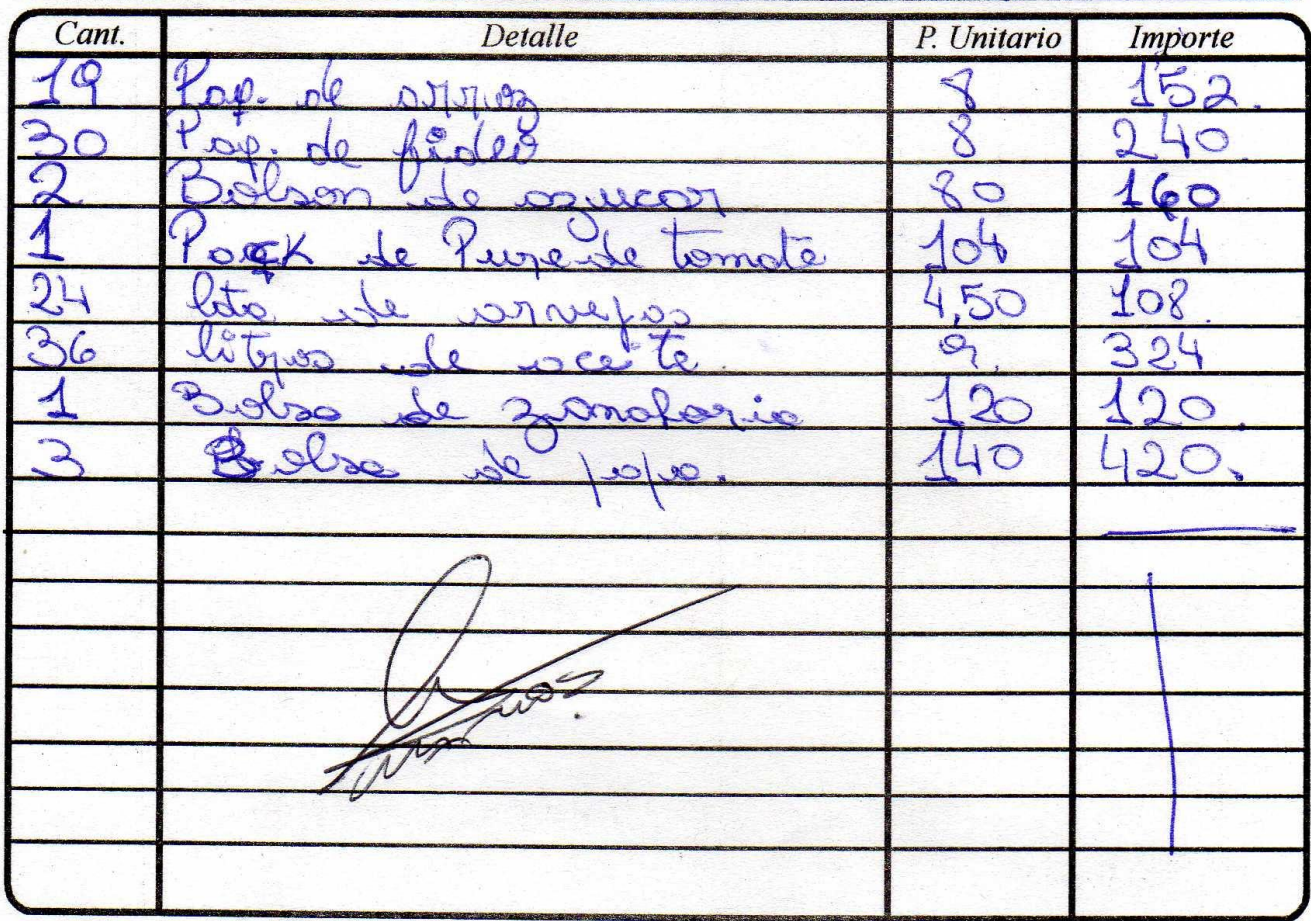 Cant. Detalle P. Unitario Importe
19 Paq. de arroz 8 152.
30 Paq. de fideo 8 240.
2 Bolson de azucar 80 160
1 Pack de Pure de tomate 104 104
24 lata de arvejas 4,50 108.
36 litros de aceite. 9. 324
1 Bolsa de zanahoria 120 120.
3 Bolsa de papa. 140 420.